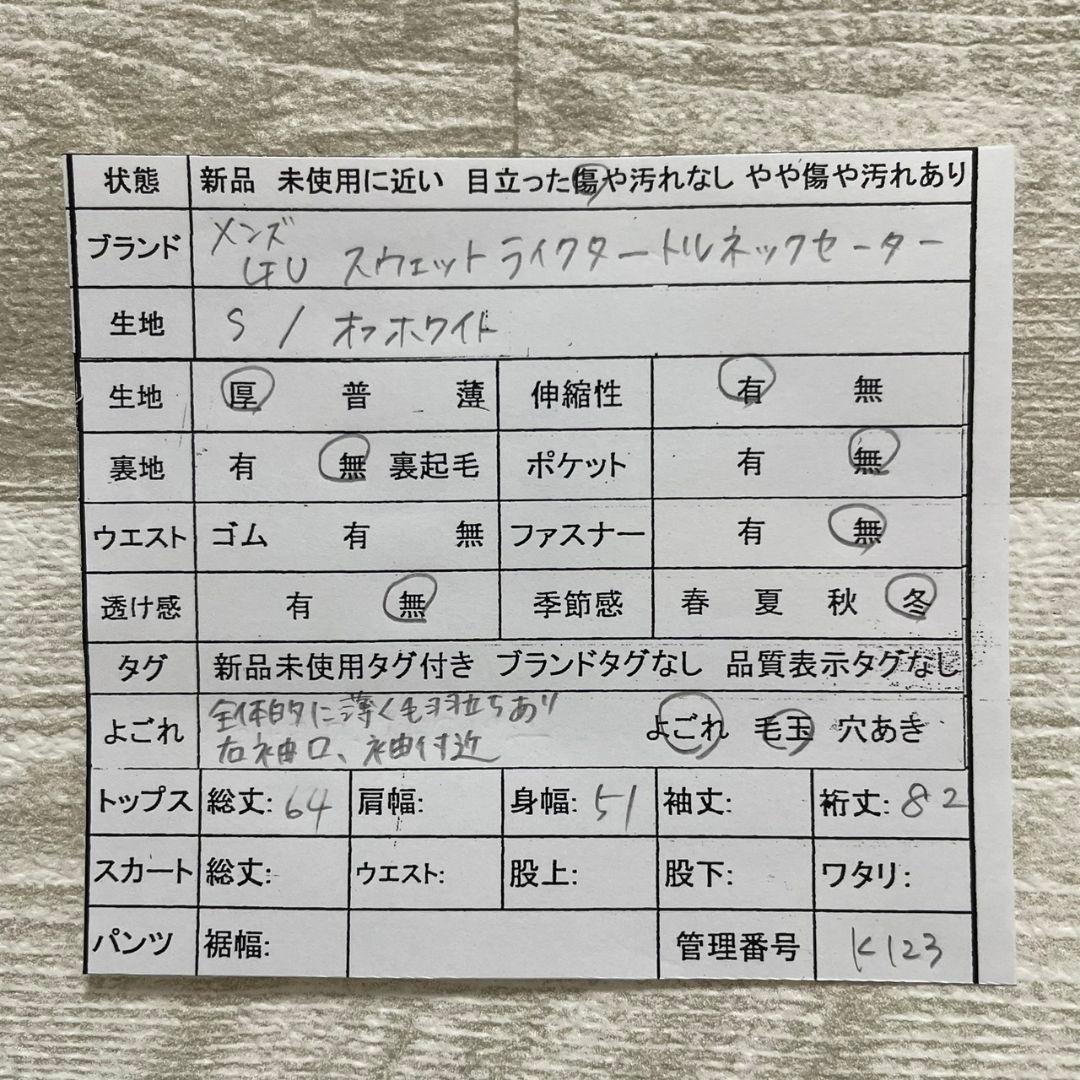 状態 新品 未使用に近い 目立った傷や汚れなし やや傷や汚れあり
ブランド メンズ
GU スウェットライクタートルネックセーター
生地 S / オフホワイト
生地 厚 普 薄 伸縮性 有 無
裏地 有 無 裏起毛 ポケット 有 無
ウエスト ゴム 有 無 ファスナー 有 無
透け感 有 無 季節感 春 夏 秋 冬
タグ 新品未使用タグ付き ブランドタグなし 品質表示タグなし
よごれ 全体的に薄く毛羽立ちあり よごれ 毛玉 穴あき
右袖口、袖付近
トップス 総丈:64 肩幅: 身幅:51 袖丈: 裄丈:82
スカート 総丈: ウエスト: 股上: 股下: ワタリ:
パンツ 裾幅: 管理番号 K123